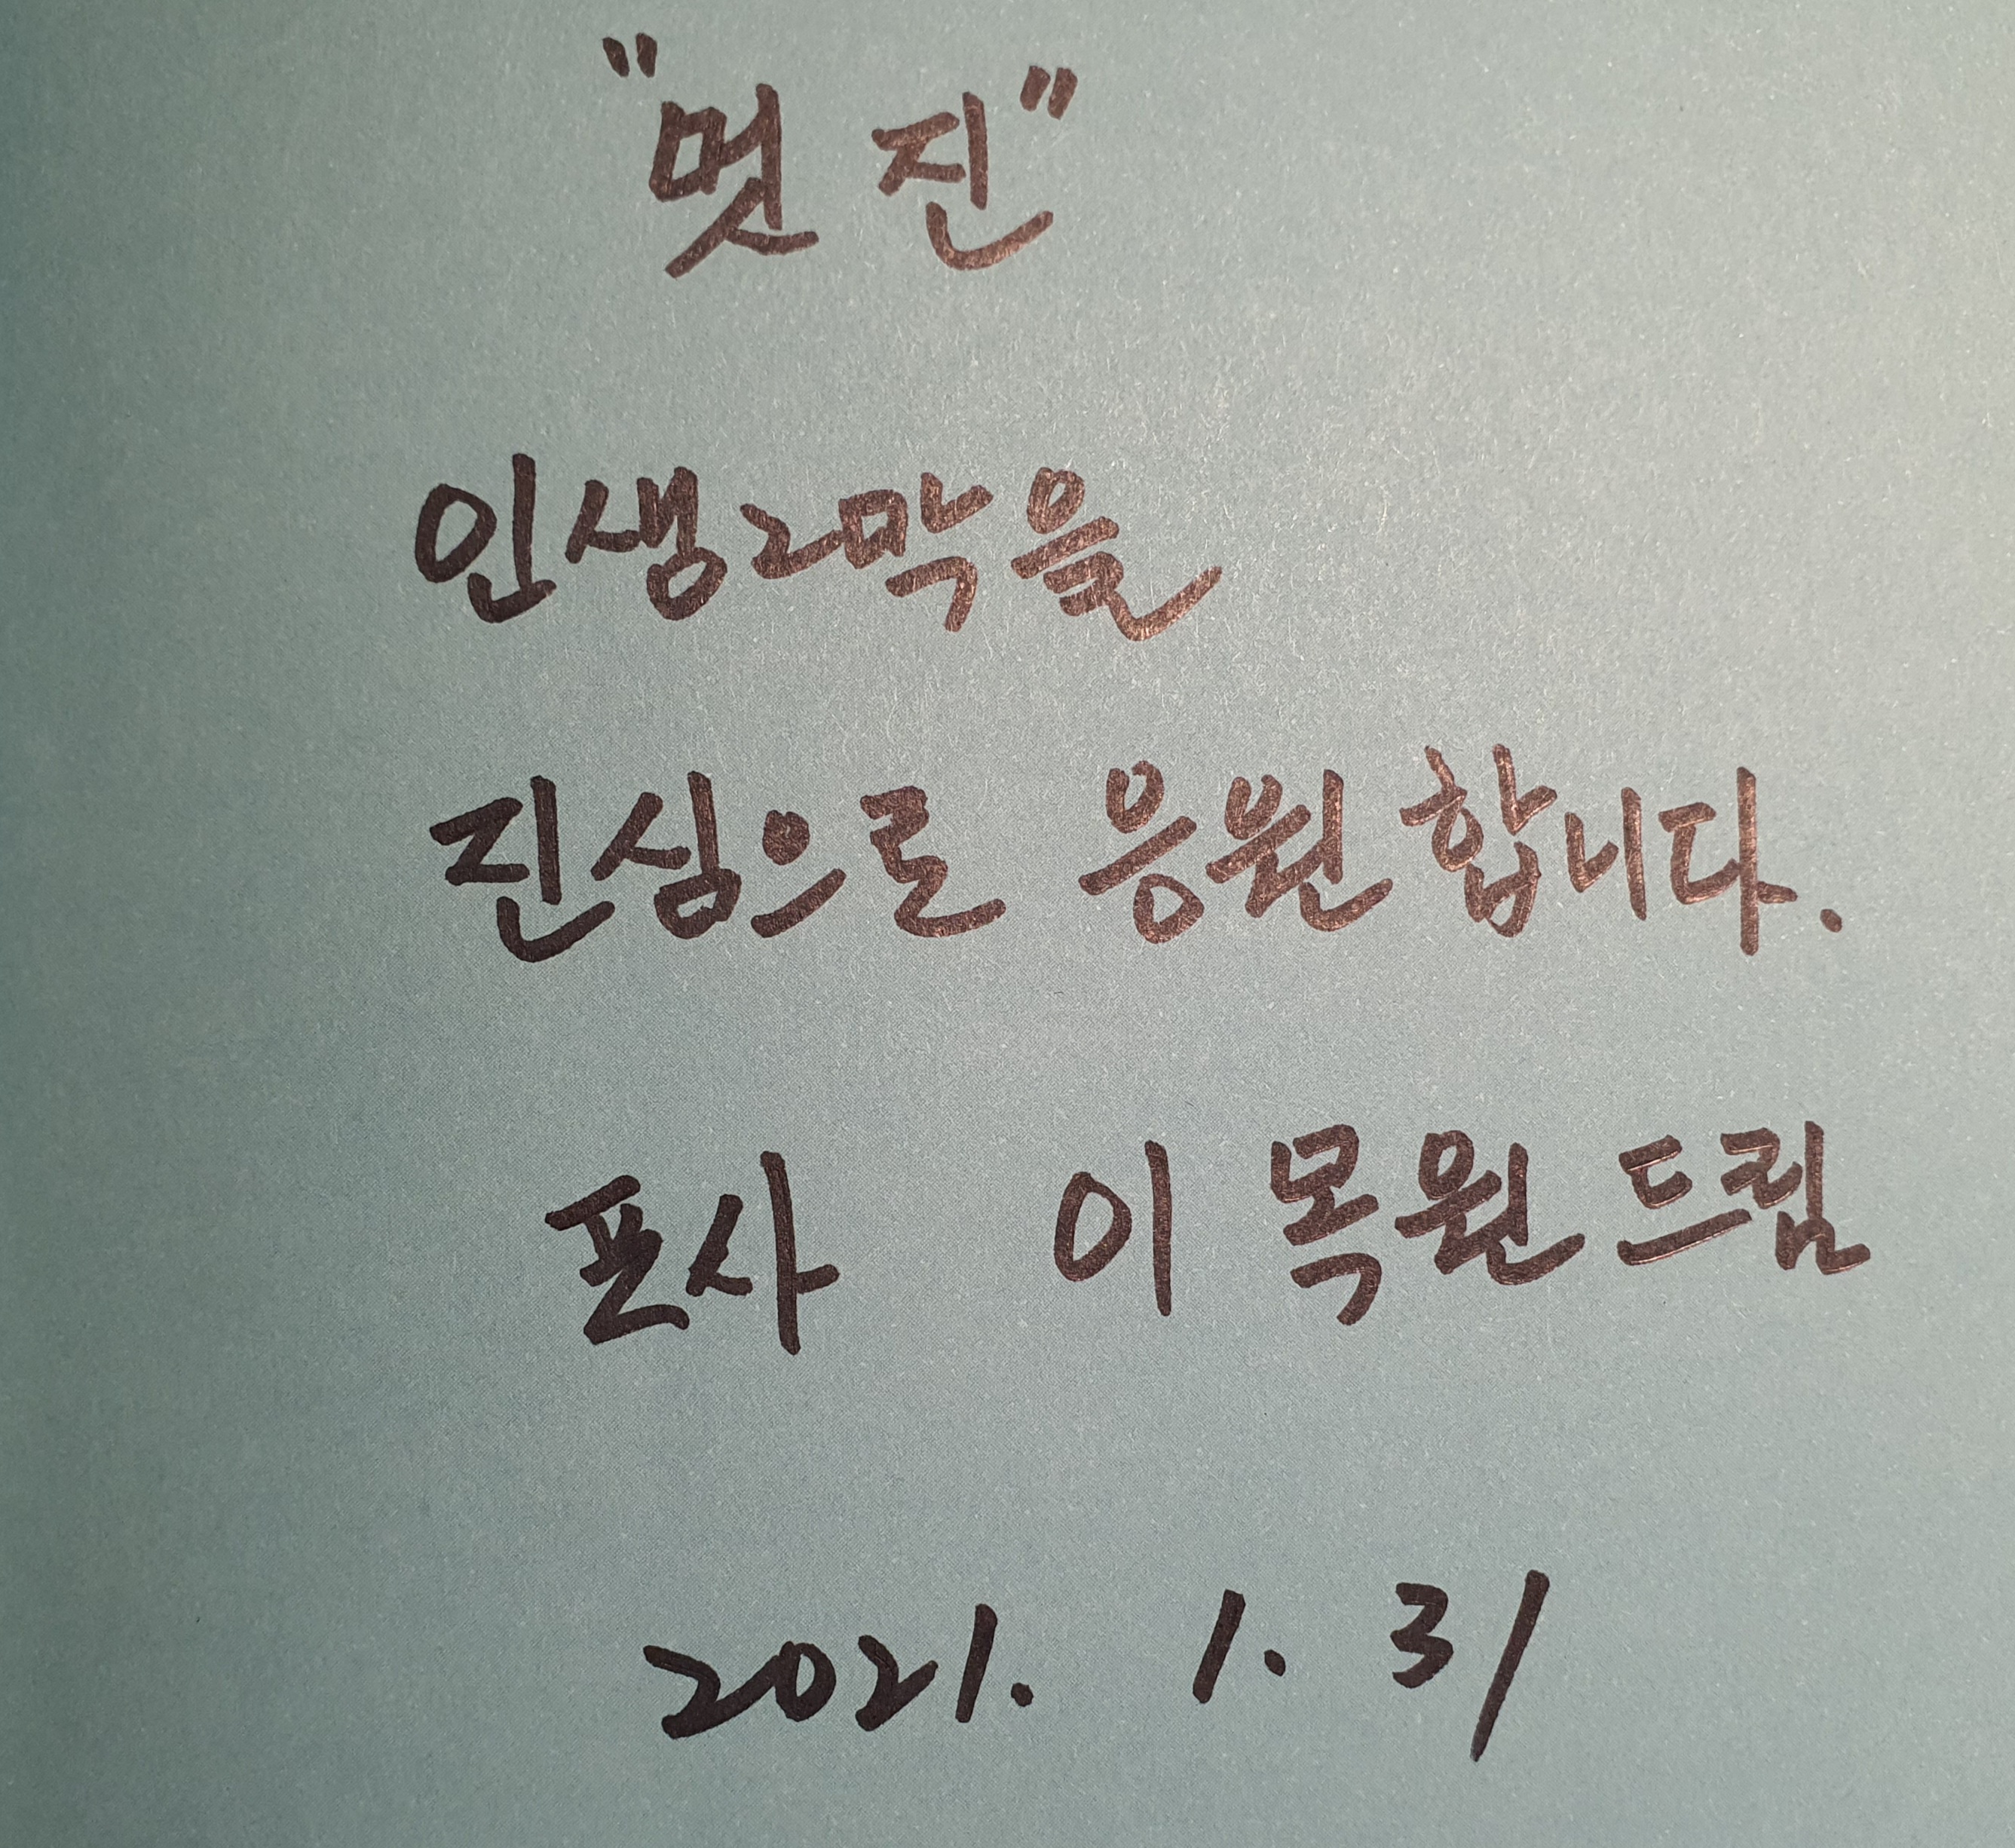 "멋진"
인생2막을
진심으로 응원합니다.
표사 이목원드림
2021. 1. 31